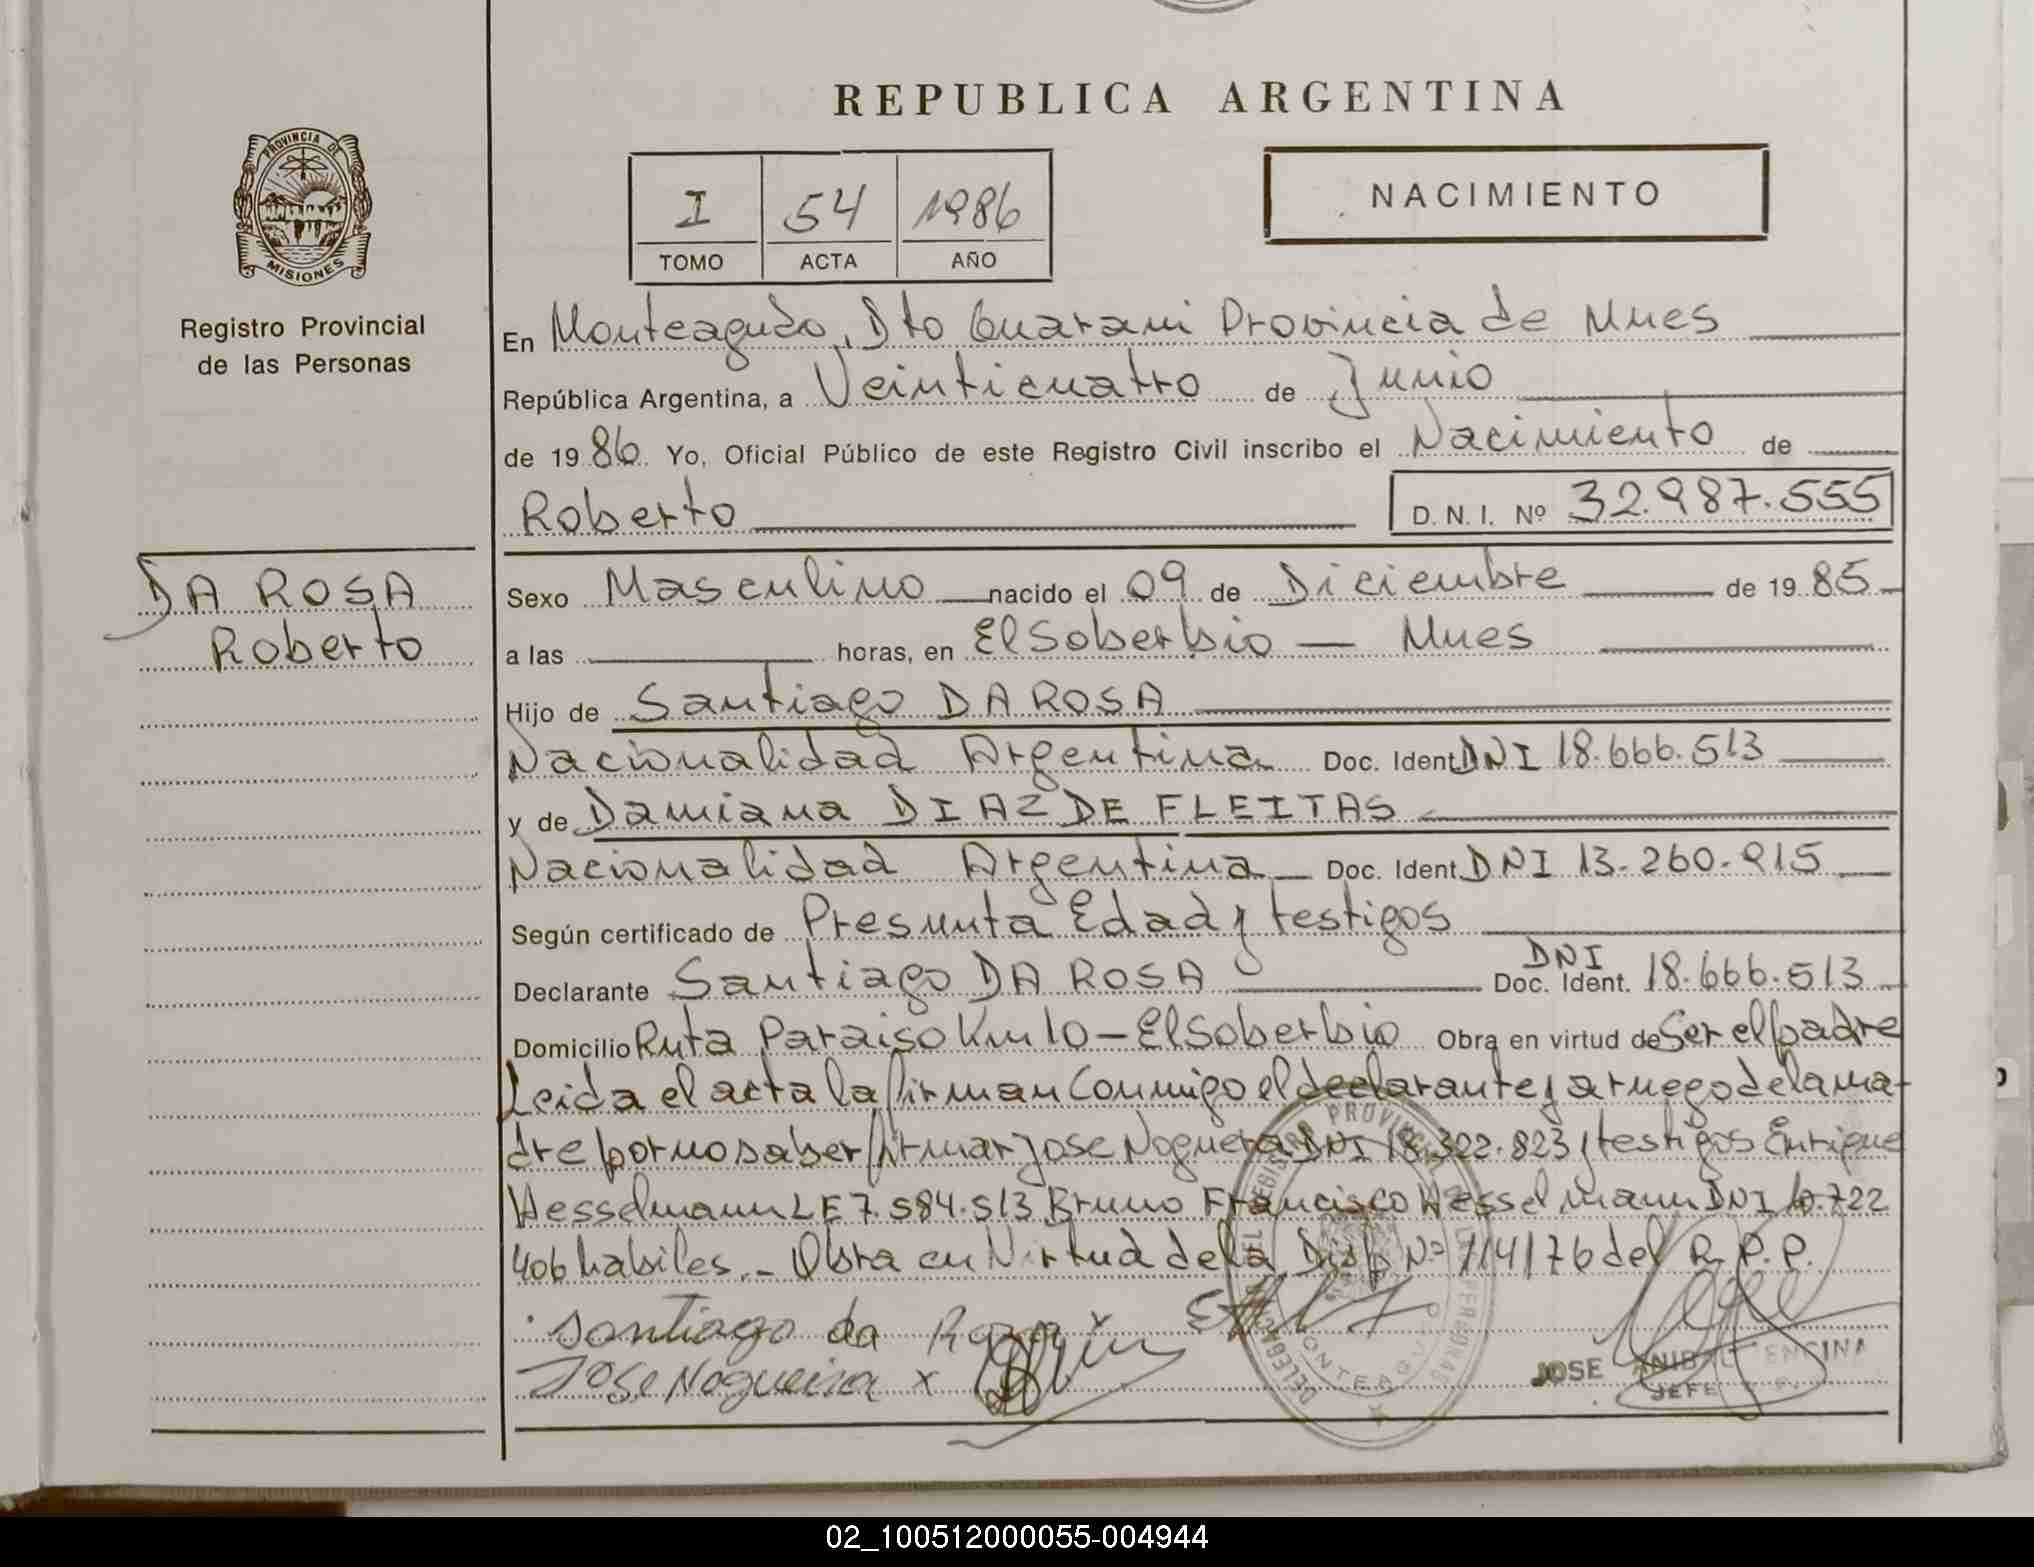 REPUBLICA ARGENTINA
PROVINCIA DE
MISIONES
Registro Provincial
de las Personas
I 54 1986
TOMO ACTA AÑO
NACIMIENTO
En Monteagudo, Dto Guarani Provincia de Mnes
República Argentina, a Veinticuatro de Junio
de 1986 Yo, Oficial Público de este Registro Civil inscribo el Nacimiento de
Roberto D. N. I. Nº 32.987.555
DA ROSA
Roberto
Sexo Masculino nacido el 09 de Diciembre de 1985
a las horas, en El Soberbio — Mnes
Hijo de Santiago DA ROSA
Nacionalidad Argentina Doc. Ident DNI 18.666.513
y de Damiana DIAZ DE FLEITAS
Nacionalidad Argentina Doc. Ident DNI 13.260.915
Según certificado de Presunta Edad y testigos
Declarante Santiago DA ROSA Doc. Ident. DNI 18.666.513
Domicilio Ruta Paraiso Km 10 - El Soberbio Obra en virtud de Ser el padre
Leida el acta la firman Conmigo el declarante y a ruego de la ma-
dre por no saber firmar Jose Noguera DNI 18.322.823 y testigos Enrique
Hesselmann LE 7.584.513 Bruno Francisco Hesselmann DNI 10.722
406 habiles.- Obra en Virtud de la Disp Nº 114/76 del R.P.P.
Santiago da Rosa
Jose Nogueira x
JOSE ANIBAL ENCINA
JEFE
02_100512000055-004944